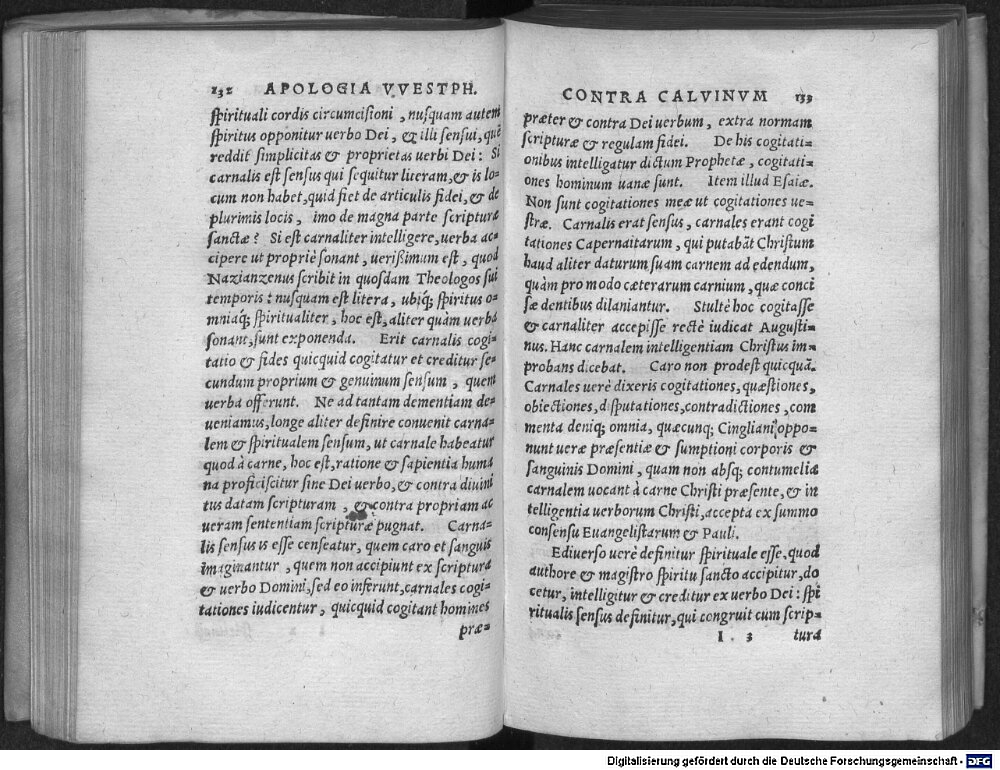 132 APOLOGIA VVESTPH.
spirituali cordis circumcisioni, nusquam autem
spiritus opponitur uerbo Dei, & illi sensui, quē
reddit simplicitas & proprietas uerbi Dei: Si
carnalis est sensus qui sequitur literam, & is lo=
cum non habet, quid fiet de articulis fidei, & de
plurimis locis, imo de magna parte scripturæ
sanctæ? Si est carnaliter intelligere, uerba ac=
cipere ut propriè sonant, uerißimum est, quod
Nazianzenus scribit in quosdam Theologos sui
temporis: nusquam est litera, ubiq; spiritus o=
mniaq; spiritualiter, hoc est, aliter quàm uerba
sonant, sunt exponenda. Erit carnalis cogi=
tatio & fides quicquid cogitatur et creditur se=
cundum proprium & genuinum sensum, quem
uerba offerunt. Ne ad tantam dementiam de=
ueniamus, longe aliter definire conuenit carna=
lem & spiritualem sensum, ut carnale habeatur
quod à carne, hoc est, ratione & sapientia huma
na proficiscitur sine Dei uerbo, & contra diuini
tus datam scripturam, & contra propriam ac
ueram sententiam scripturæ pugnat. Carna=
lis sensus is esse censeatur, quem caro et sanguis
imaginantur, quem non accipiunt ex scriptura
& uerbo Domini, sed eo inferunt, carnales cogi=
tationes iudicentur, quicquid cogitant homines
præ=
CONTRA CALVINVM 133
præter & contra Dei uerbum, extra normam
scripturæ & regulam fidei. De his cogitati=
onibus intelligatur dictum Prophetæ, cogitati=
ones hominum uanæ sunt. Item illud Esaiæ.
Non sunt cogitationes meæ ut cogitationes ue=
stræ. Carnalis erat sensus, carnales erant cogi
tationes Capernaitarum, qui putabāt Christum
haud aliter daturum suam carnem ad edendum,
quàm pro modo cæterarum carnium, quæ conci
sæ dentibus dilaniantur. Stultè hoc cogitasse
& carnaliter accepisse rectè iudicat Augusti=
nus. Hanc carnalem intelligentiam Christus im=
probans dicebat. Caro non prodest quicquā.
Carnales uerè dixeris cogitationes, quæstiones,
obiectiones, disputationes, contradictiones, com
menta deniq; omnia, quæcunq; Cingliani oppo=
nunt ueræ præsentiæ & sumptioni corporis &
sanguinis Domini, quam non absq; contumelia
carnalem uocant à carne Christi præsente, & in
telligentia uerborum Christi, accepta ex summo
consensu Euangelistarum & Pauli.
Ediuerso uerè definitur spirituale esse, quod
authore & magistro spiritu sancto accipitur, do
cetur, intelligitur & creditur ex uerbo Dei: spi
ritualis sensus definitur, qui congruit cum scrip=
I . 3 tura
Digitalisierung gefördert durch die Deutsche Forschungsgemeinschaft - DFG